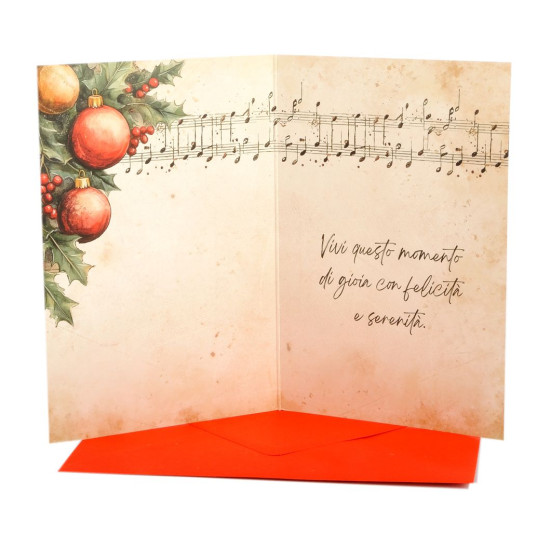 Vivi questo momento
di gioia con felicità
e serenità.